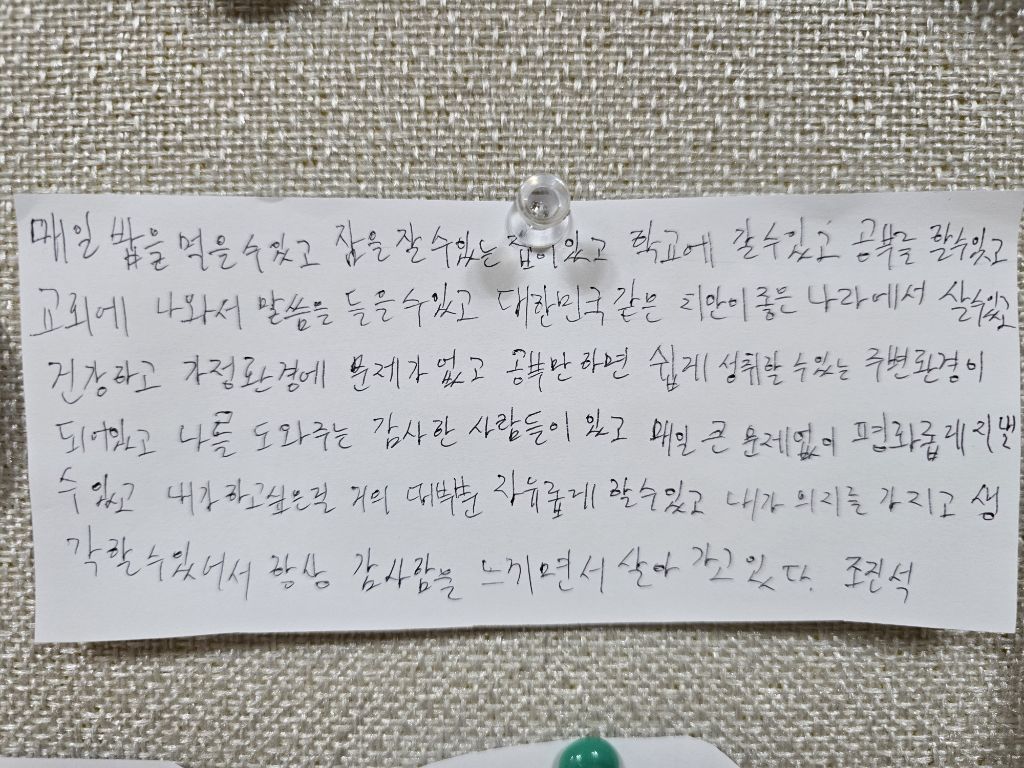 매일 밥을 먹을수있고 잠을 잘수있는 집이있고 학교에 갈수있고 공부를 할수있고
교회에 나와서 말씀을 들을수있고 대한민국같은 치안이좋은 나라에서 살수있고
건강하고 가정환경에 문제가 없고 공부만하면 쉽게 성취할 수있는 주변환경이
되어있고 나를 도와주는 감사한 사람들이 있고 매일 큰 문제없이 평화롭게지낼
수 있고 내가하고싶은걸 거의 대부분 자유롭게 할수있고 내가 의지를 가지고 생
각할수있어서 항상 감사함을 느끼면서 살아 가고있다. 조진석